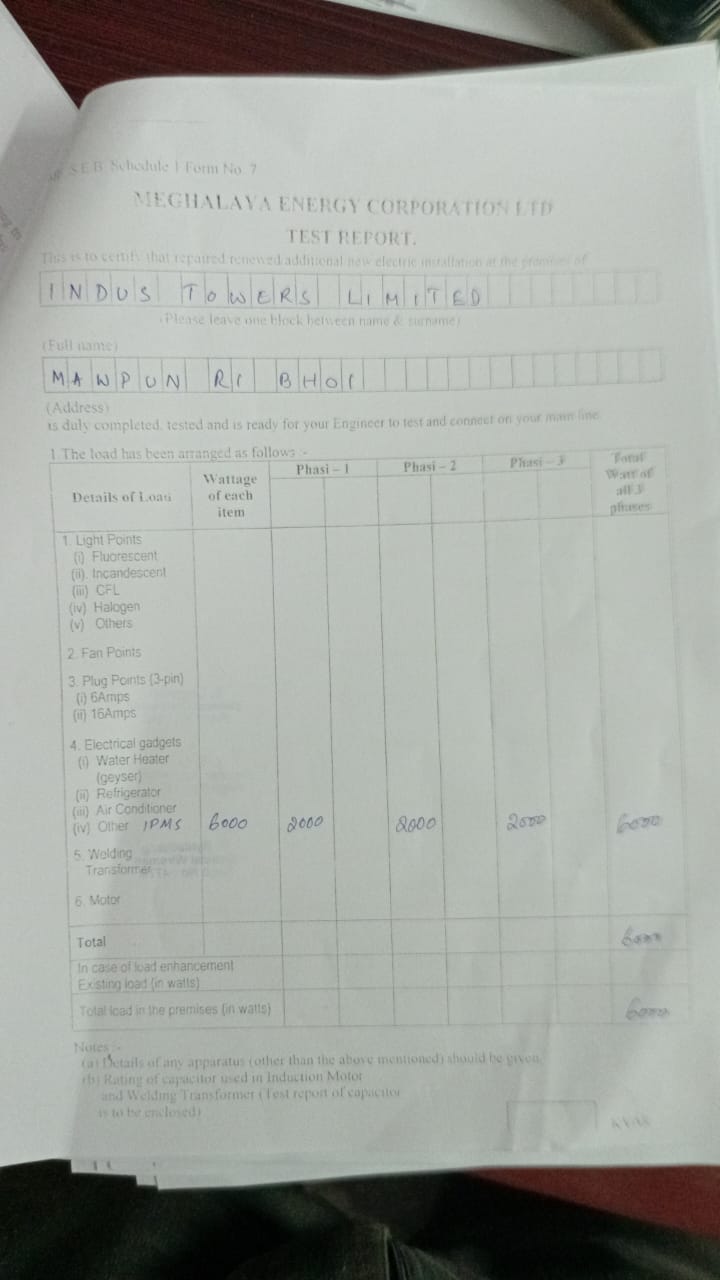 S.E.B. Schedule 1 Form No. 7
MEGHALAYA ENERGY CORPORATION LTD
TEST REPORT.
This is to certify that repaired renewed additional new electric installation at the premises of
INDUS TOWERS LIMITED
(Please leave one block between name & surname)
(Full name)
MAWPUN RI BHOI
(Address)
is duly completed, tested and is ready for your Engineer to test and connect on your main line
1.The load has been arranged as follows :-
Details of Load Wattage of each item Phasi – 1 Phasi – 2 Phasi – 3 Total Watt of all 3 phases
1. Light Points
(i) Fluorescent
(ii). Incandescent
(iii) CFL
(iv) Halogen
(v) Others
2. Fan Points
3. Plug Points (3-pin)
(i) 6Amps
(ii) 16Amps
4. Electrical gadgets
(i) Water Heater
(geyser)
(ii) Refrigerator
(iii) Air Conditioner
(iv) Other IPMS 6000 2000 2000 2000 6000
5. Welding
Transformer
6. Motor
Total 6000
In case of load enhancement
Existing load (in watts)
Total load in the premises (in watts) 6000
Notes :-
(a) Details of any apparatus (other than the above mentioned) should be given.
(b) Rating of capacitor used in Induction Motor
and Welding Transformer (Test report of capacitor
is to be enclosed)
KVAR